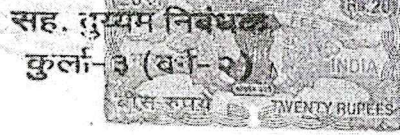 सह. दुय्यम निबंधक
कुर्ला-३ (वर्ग-२)
INDIA
बीस रुपये TWENTY RUPEES